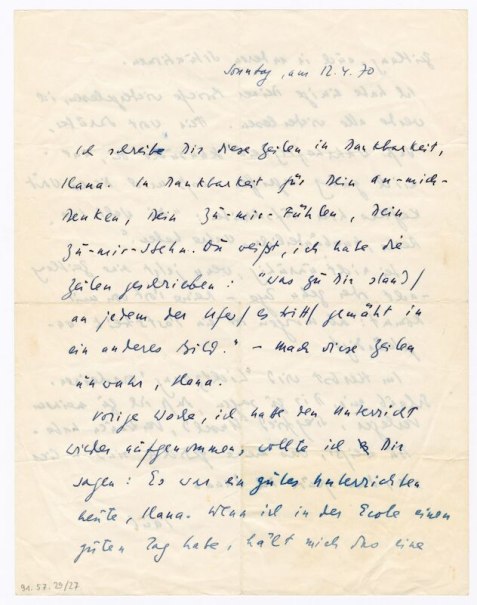 Sonntag, am 12.4.70
Ich schreibe Dir diese Zeilen in Dankbarkeit,
Ilana. In Dankbarkeit für Dein an-mich-
Denken, Dein Zu-mir-Fühlen, Dein
Zu-mir-Stehn. Du weißt, ich habe die
Zeilen geschrieben: "Was zu dir stand/
an jedem der Ufer/ es tritt/ gemäht in
ein anderes Bild." – Mach diese Zeilen
unwahr, Ilana.
Vorige Woche, ich habe den Unterricht
wieder aufgenommen, wollte ich Dir
sagen: Es war ein gutes Unterrichten
heute, Ilana. Wenn ich in der Ecole einen
guten Tag habe, hält mich das eine
91.57.29/27